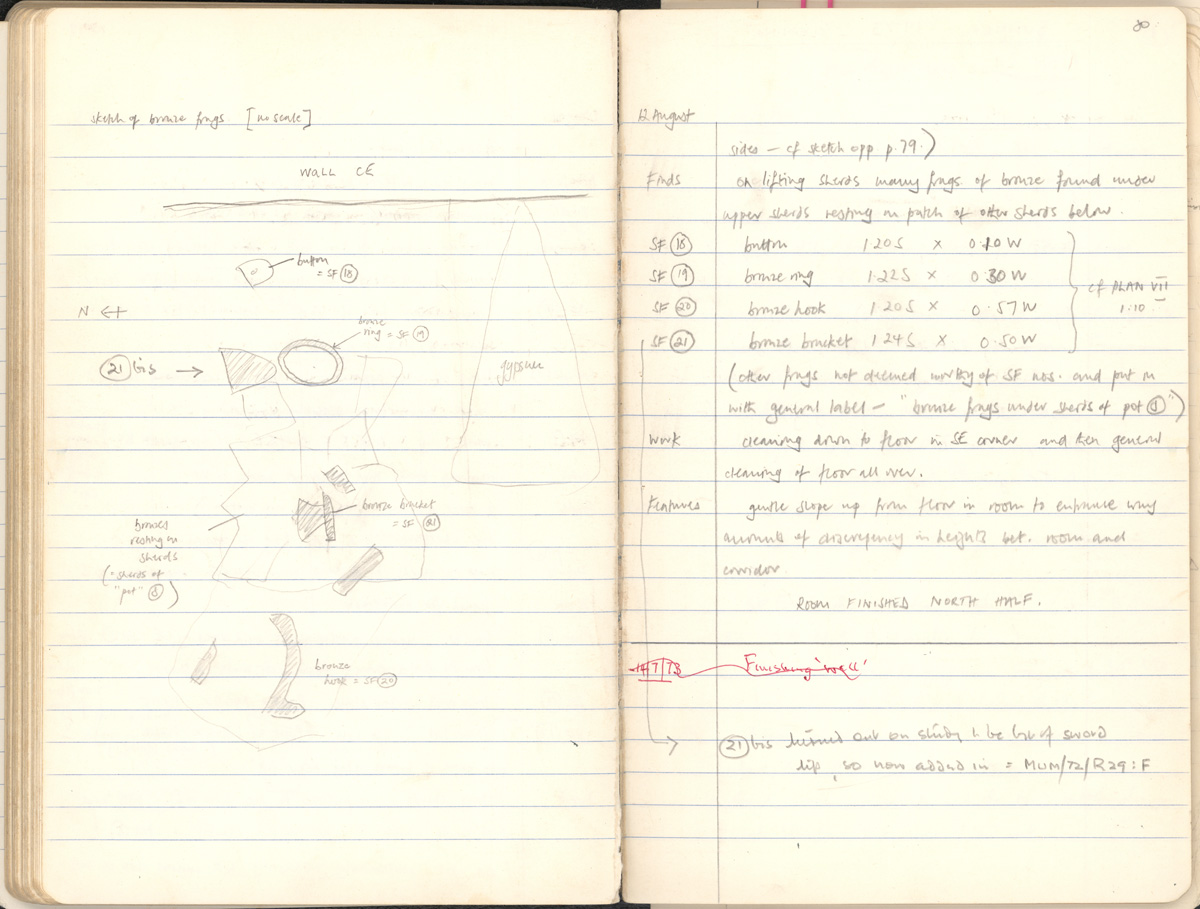 sketch of bronze frags [no scale]
WALL CE
button
= SF 18
N ←+
bronze
ring = SF 19
21 bis →
gypsum
bronze bracket
= SF 21
bronzes
resting on
sherds
(= sherds of
"pot" 8)
bronze
hook = SF 20
80
12 August
sides — cf sketch opp p. 79.)
Finds on lifting sherds many frags of bronze found under
upper sherds resting on patch of other sherds below.
SF 18 button 1.20S × 0.10W
SF 19 bronze ring 1.22S × 0.30W
cf PLAN VII
SF 20 bronze hook 1.20S × 0.57W
1:10
SF 21 bronze bracket 1.24S × 0.50W
(other frags not deemed worthy of SF nos. and put in
with general label — "bronze frags under sherds of pot 8")
Work cleaning down to floor in SE corner and then general
cleaning of floor all over.
Features gentle slope up from floor in room to entrance way
accounts of discrepency in heights bet. room and
corridor
ROOM FINISHED NORTH HALF.
14/7/73 Finishing 'well'
21 bis turned out on study to be bit of sword
, so now added in = MUM/72/R29:F